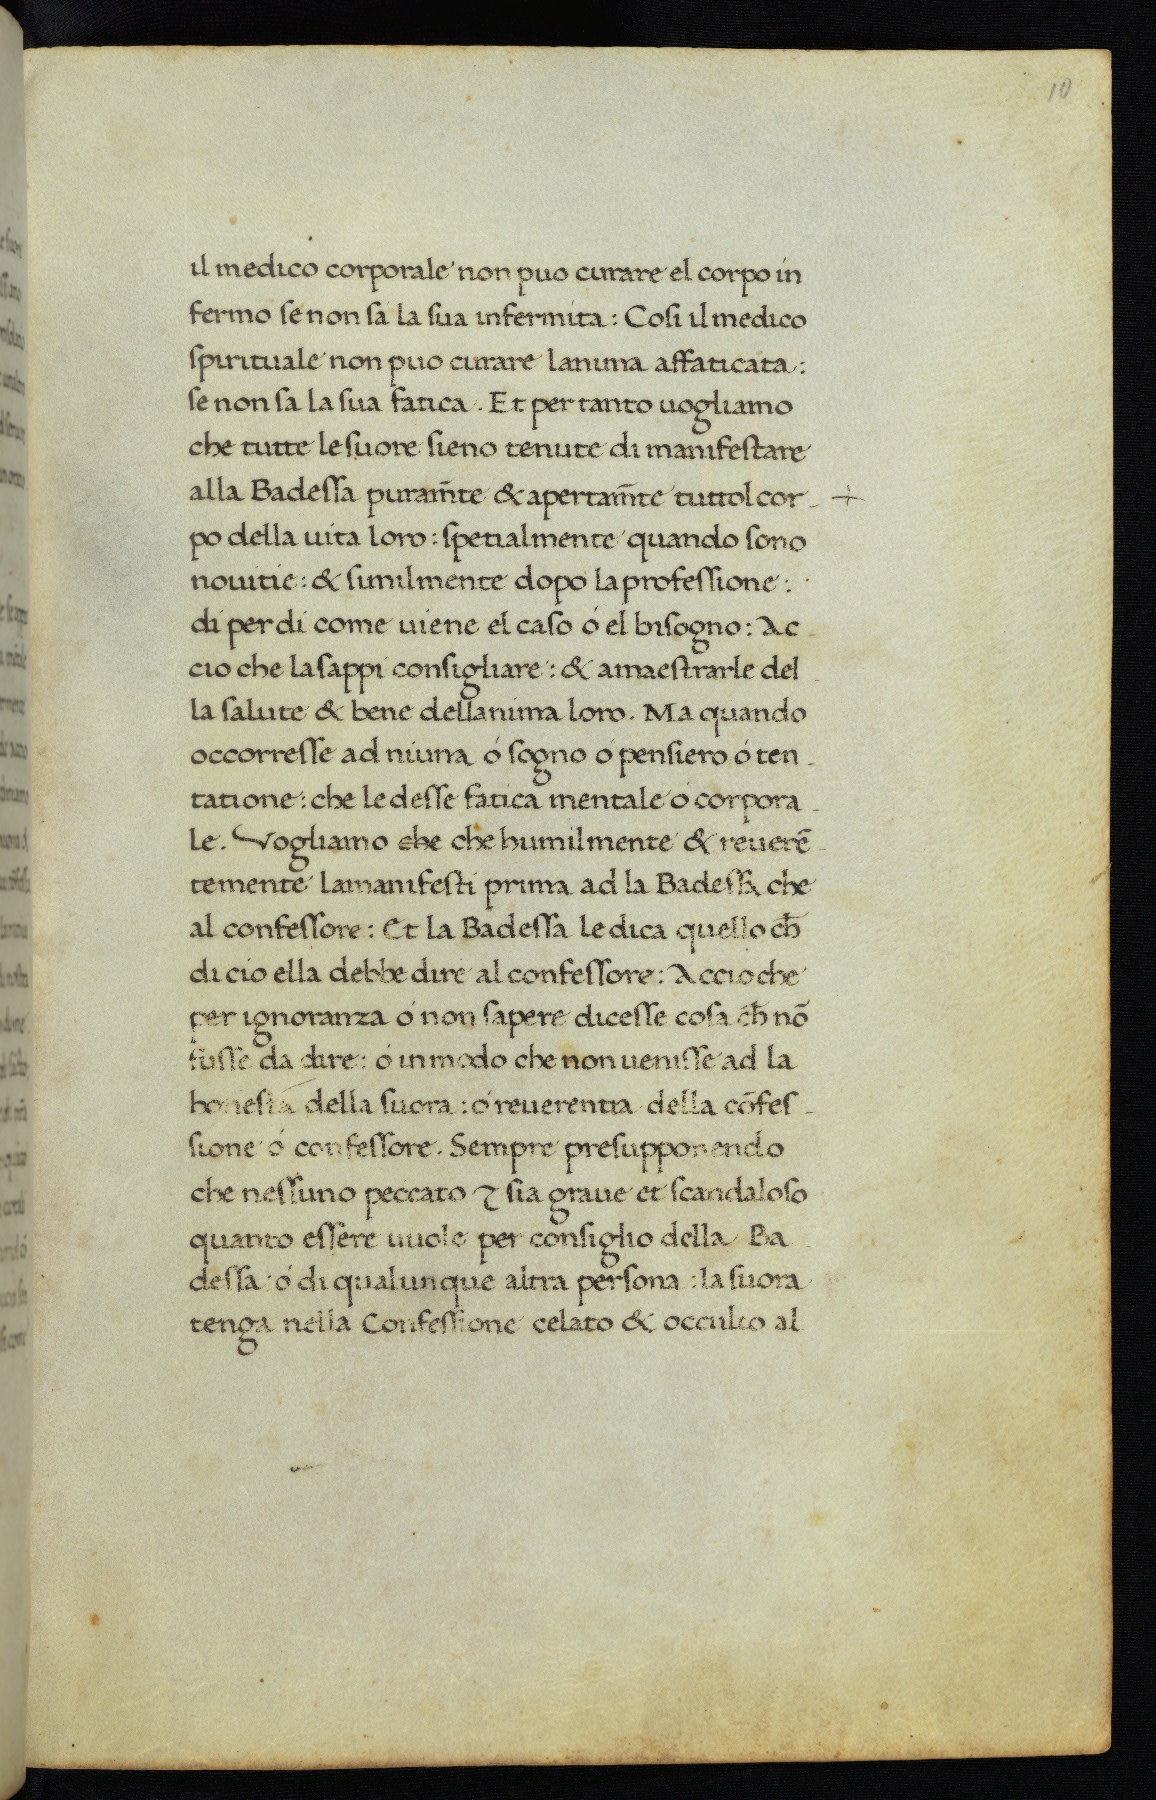 10
il medico corporale non puo curare el corpo in
fermo se non sa la sua infermita : Cosi il medico
spirituale non puo curare lanima affaticata :
se non sa la sua fatica . Et per tanto uogliamo
che tutte le suore sieno tenute di manifestare
alla Badessa puram̄te & apertam̄te tuttol cor - +
po della uita loro : spetialmente quando sono
nouitie : & similmente dopo la professione :
di per di come uiene el caso ó el bisogno : Ac -
cio che la sappi consigliare : & amaestrarle del -
la salute & bene dellanima loro . Ma quando
occorresse ad niuna ó sogno ó pensiero ó ten -
tatione : che le desse fatica mentale ó corpora -
le . Vogliamo che che humilmente & reuerē -
temente lamanifesti prima ad la Badessa che
al confessore : Et la Badessa le dica quello ch̄
di cio ella debbe dire al confessore : Accio che
per ignoranza ó non sapere dicesse cosa ch̄ nō
fusse da dire : ó in modo che non uenisse ad la
honesta della suora : ó reuerentia della cōfes -
sione ó confessore . Sempre presupponendo
che nessuno peccato ⁊ sia graue et scandaloso
quanto essere uuole per consiglio della Ba
dessa ó di qualunque altra persona : la suora
tenga nella Confessione celato & occulto al